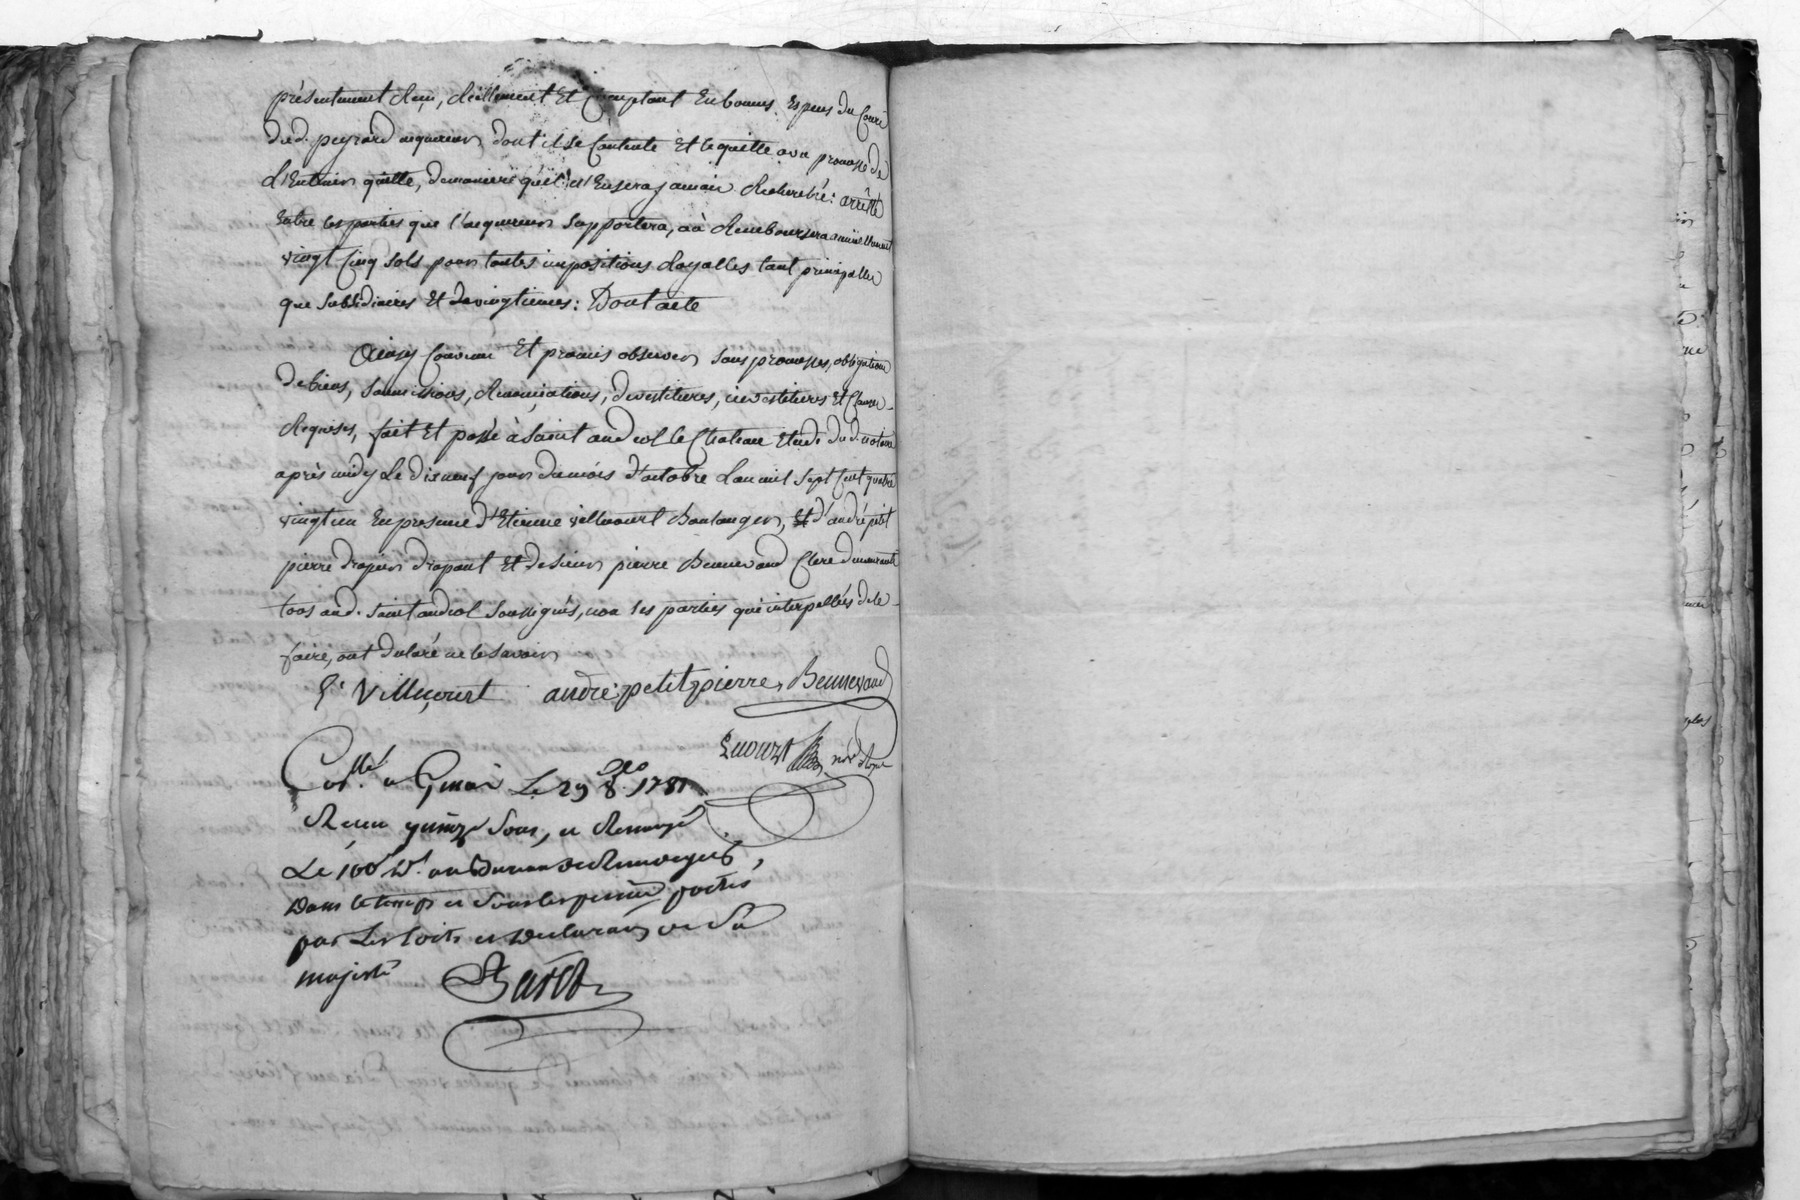 présentement Reçu, Réellement Et Comptant En bonnes Especes du Cours
dud. peyrard acquereur dont il se Contente Et le quitte avec promesse de
L'Entenir quitte, de maniere qu'il n'En sera jamais Recherché: arrêtté
Entre les parties que l'acquereur supportera, où Remboursera annuellement
vingt Cinq sols pour toutes impositions Royalles tant principalles
que subsidiaires Et de vingtiemes: Dont acte
Ainsy Convenu Et promis observer sous promesses, obligations
de biens, soumissions, Renonciations, devestitures, investitures Et Clauses
Requises, fait Et passé à saint andeol le Chateau Etude dud. notaire
après midy Le dixneuf jour du mois d'octobre L'an mil sept Cent quatre
vingt un En presence d'Etienne villecourt Boulanger, Et d'andré petit
pierre drapier drapant Et de sieur pierre Bennevaud Clerc demeurants
tous aud. saint andeol soussignés, non les parties qui interpellées de le
faire, ont declaré ne le sçavoir
Villecourt andré petitpierre Bennevaud
nre
Collé. a Le 29 8bre 1781
Reçu quinze sous, et Renvoyé
Le 100e D. au Bureau de
Dans le temps et sous les peines portés
par Les Edits et declaraôns de Sa
majesté